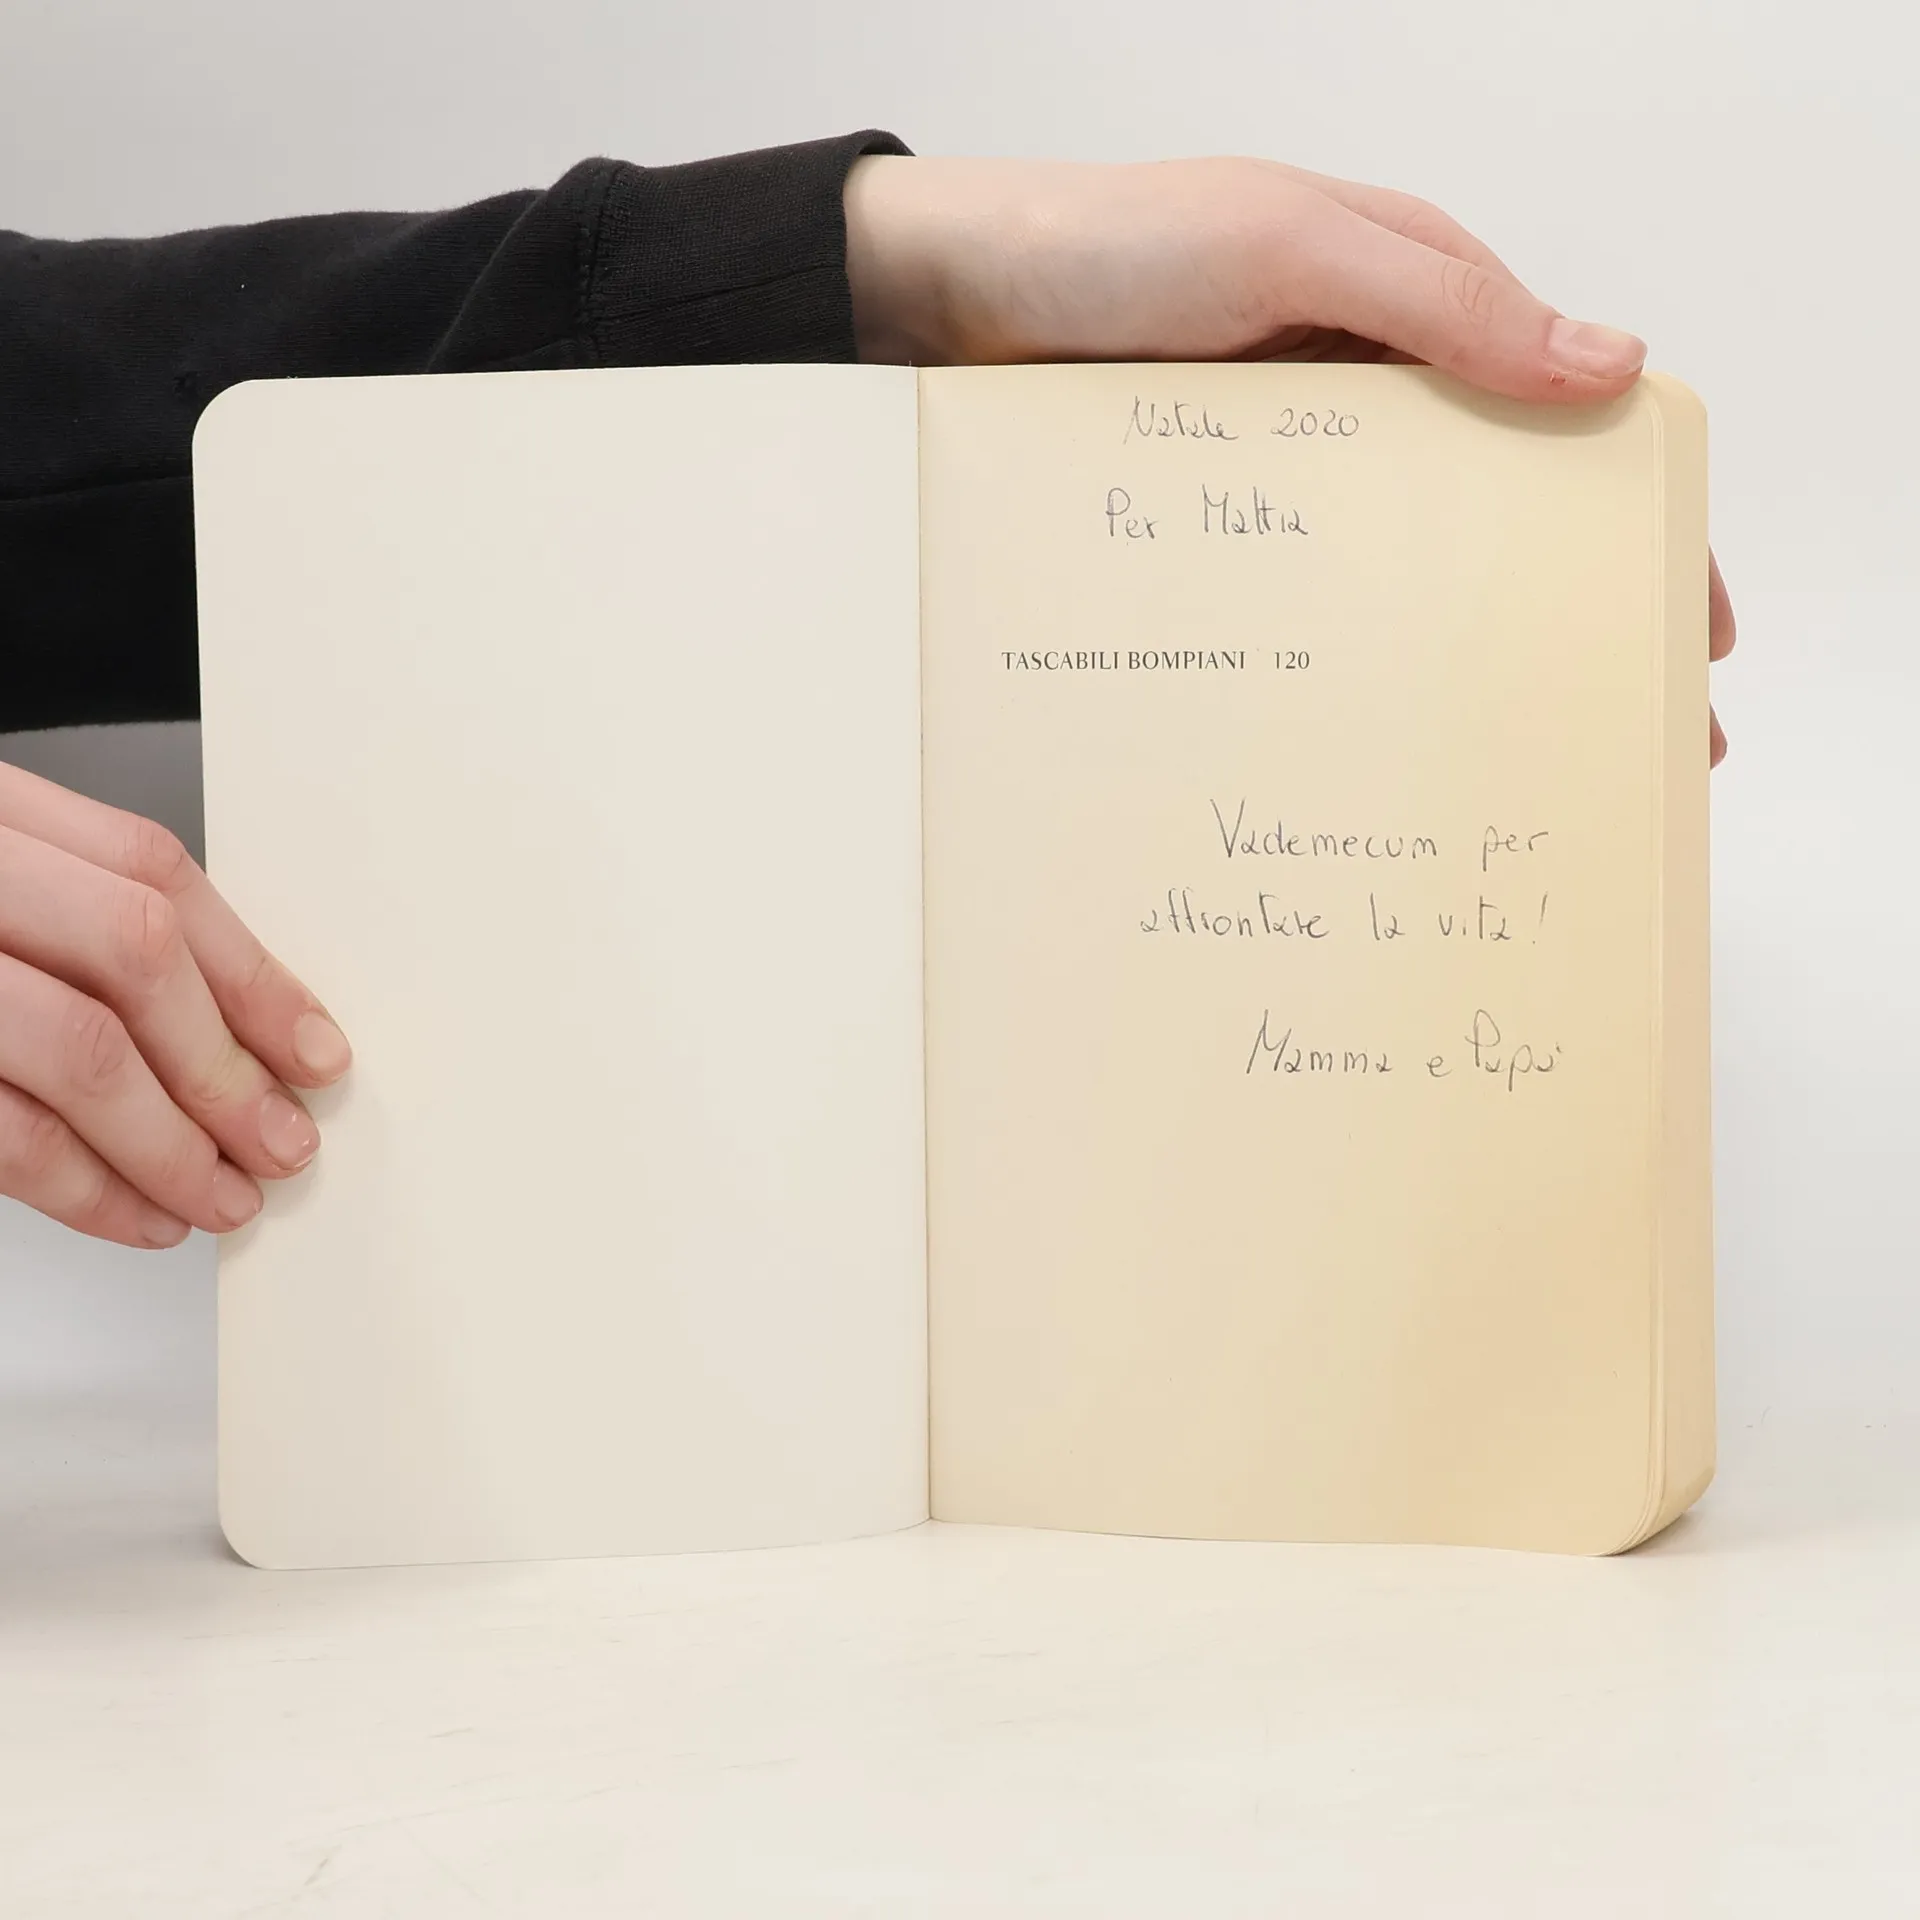 Natale 2020
Per Mattia
TASCABILI BOMPIANI 120
Vademecum per
affrontare la vita!
Mamma e Papà